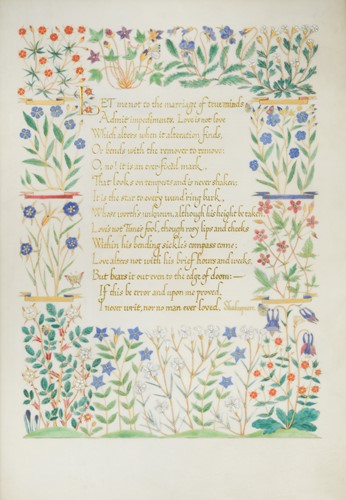 LET me not to the marriage of true minds
Admit impediments. Love is not love
Which alters when it alteration finds,
Or bends with the remover to remove:
O, no! it is an ever-fixéd mark
That looks on tempests and is never shaken;
It is the star to every wand'ring bark,
Whose worth's unknown, although his height be taken.
Love's not Time's fool, though rosy lips and cheeks
Within his bending sickle's compass come;
Love alters not with his brief hours and weeks,
But bears it out even to the edge of doom:—
If this be error and upon me proved,
I never writ, nor no man ever loved. Shakespeare.